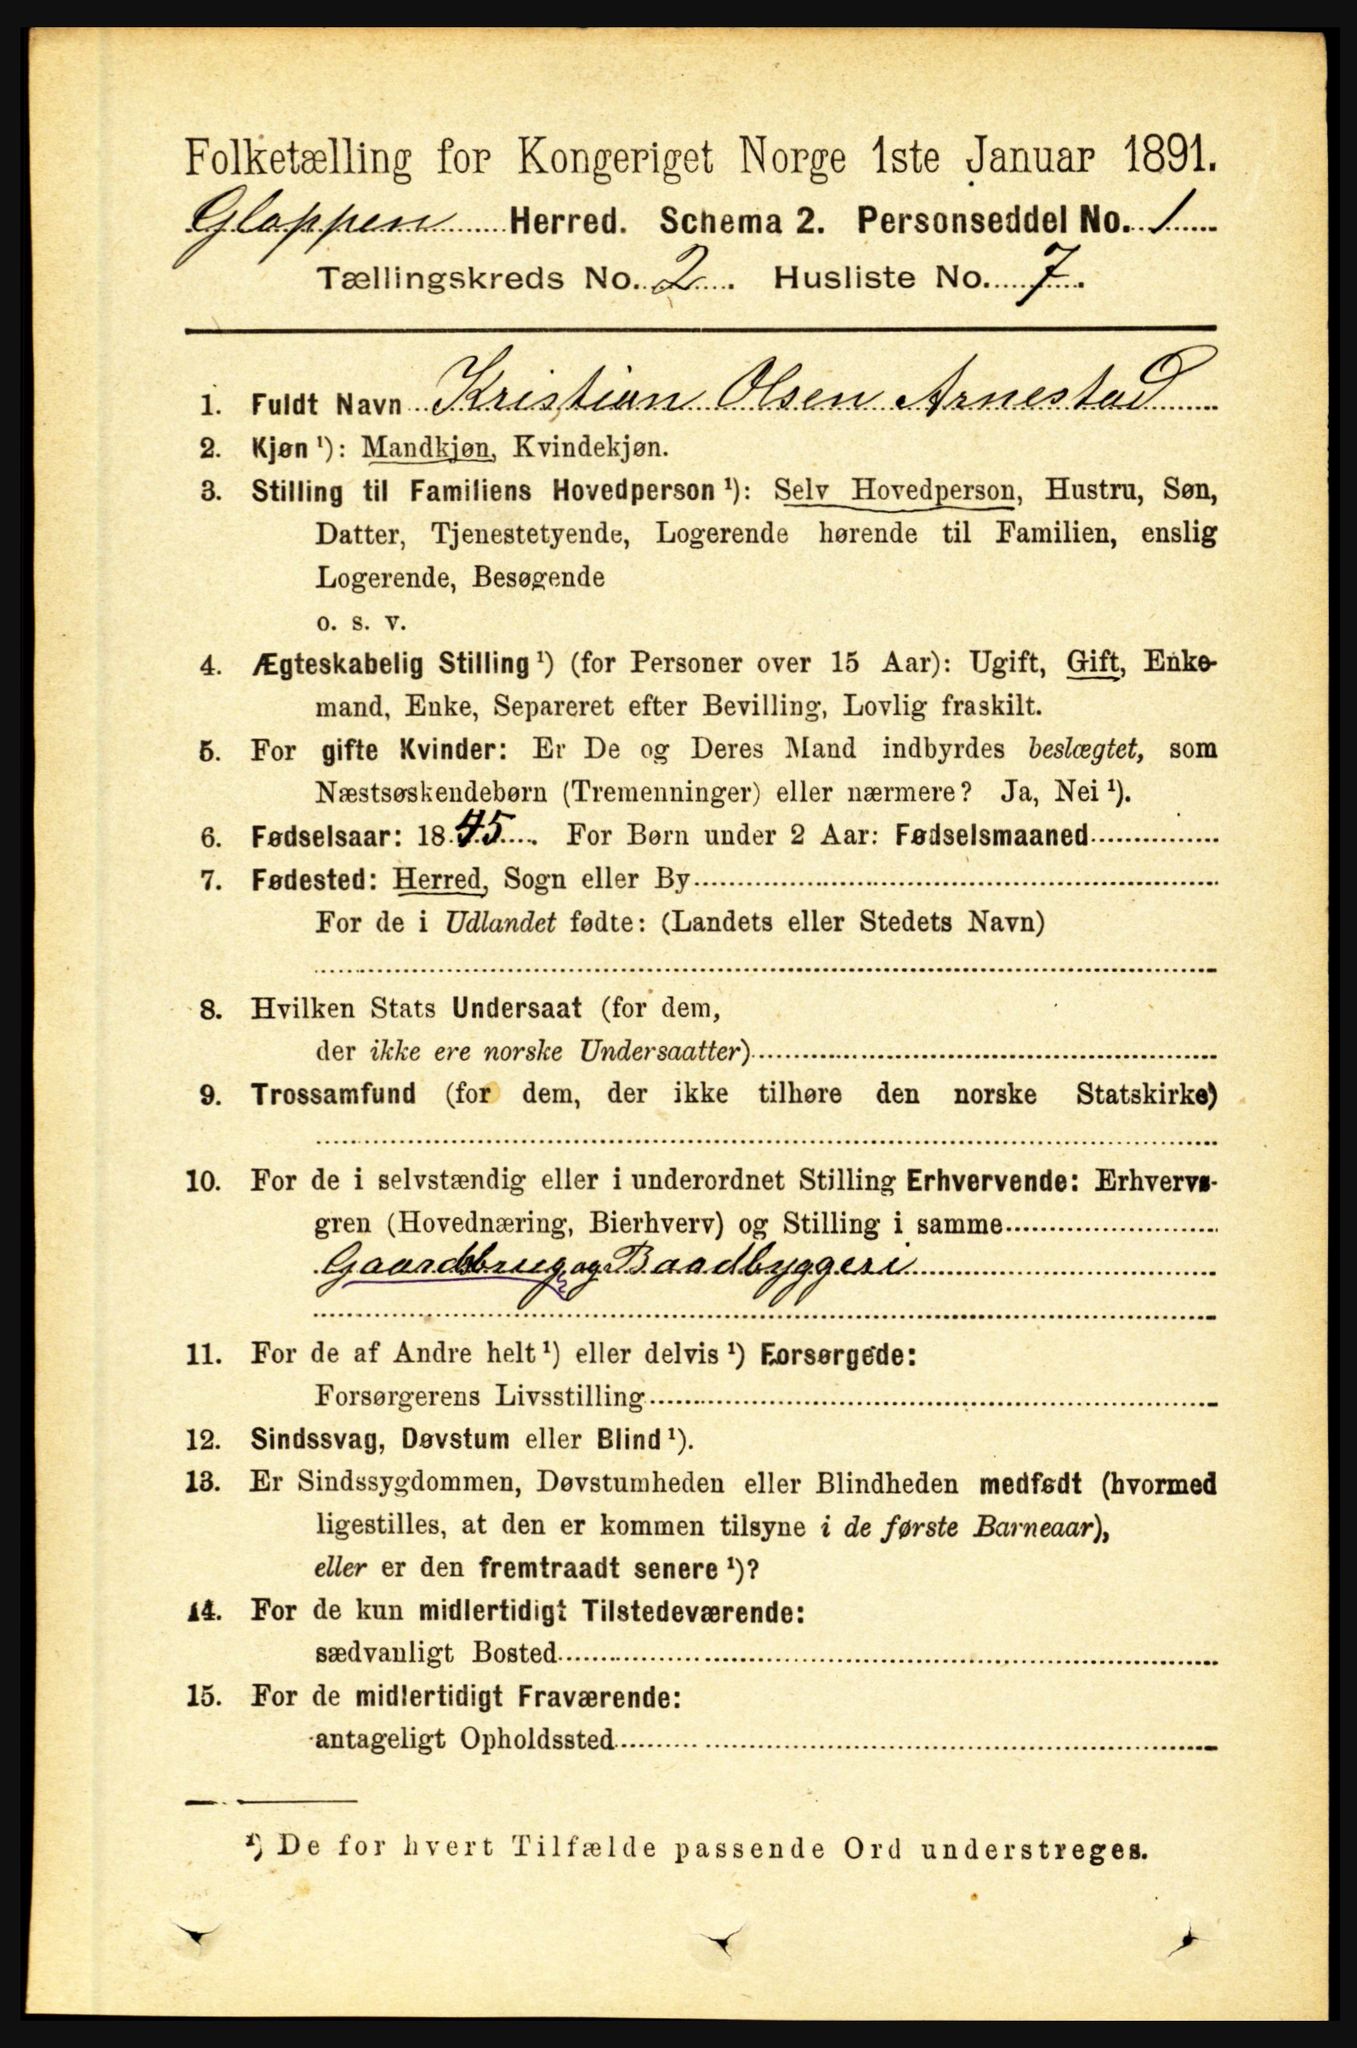 Folketælling for Kongeriget Norge 1ste Januar 1891.
Gloppen Herred. Schema 2. Personseddel No. 1
Tællingskreds No. 2. Husliste No. 7.
1. Fuldt Navn Kristian Olsen Arnestad
2. Kjøn ¹): Mandkjøn, Kvindekjøn.
3. Stilling til Familiens Hovedperson ¹): Selv Hovedperson, Hustru, Søn,
Datter, Tjenestetyende, Logerende hørende til Familien, enslig
Logerende, Besøgende
o. s. v.
4. Ægteskabelig Stilling ¹) (for Personer over 15 Aar): Ugift, Gift, Enke-
mand, Enke, Separeret efter Bevilling, Lovlig fraskilt.
5. For gifte Kvinder: Er De og Deres Mand indbyrdes beslægtet, som
Næstsøskendebørn (Tremenninger) eller nærmere? Ja, Nei ¹).
6. Fødselsaar: 1845. For Børn under 2 Aar: Fødselsmaaned
7. Fødested: Herred, Sogn eller By
For de i Udlandet fødte: (Landets eller Stedets Navn)
8. Hvilken Stats Undersaat (for dem,
der ikke ere norske Undersaatter)
9. Trossamfund (for dem, der ikke tilhøre den norske Statskirke)
10. For de i selvstændig eller i underordnet Stilling Erhvervende: Erhvervs-
gren (Hovednæring, Bierhverv) og Stilling i samme
Gaardsbrug og Baadbyggeri
11. For de af Andre helt ¹) eller delvis ¹) Forsørgede:
Forsørgerens Livsstilling
12. Sindssvag, Døvstum eller Blind ¹).
13. Er Sindssygdommen, Døvstumheden eller Blindheden medfødt (hvormed
ligestilles, at den er kommen tilsyne i de første Barneaar),
eller er den fremtraadt senere ¹)?
14. For de kun midlertidigt Tilstedeværende:
sædvanligt Bosted
15. For de midlertidigt Fraværende:
antageligt Opholdssted
¹) De for hvert Tilfælde passende Ord understreges.